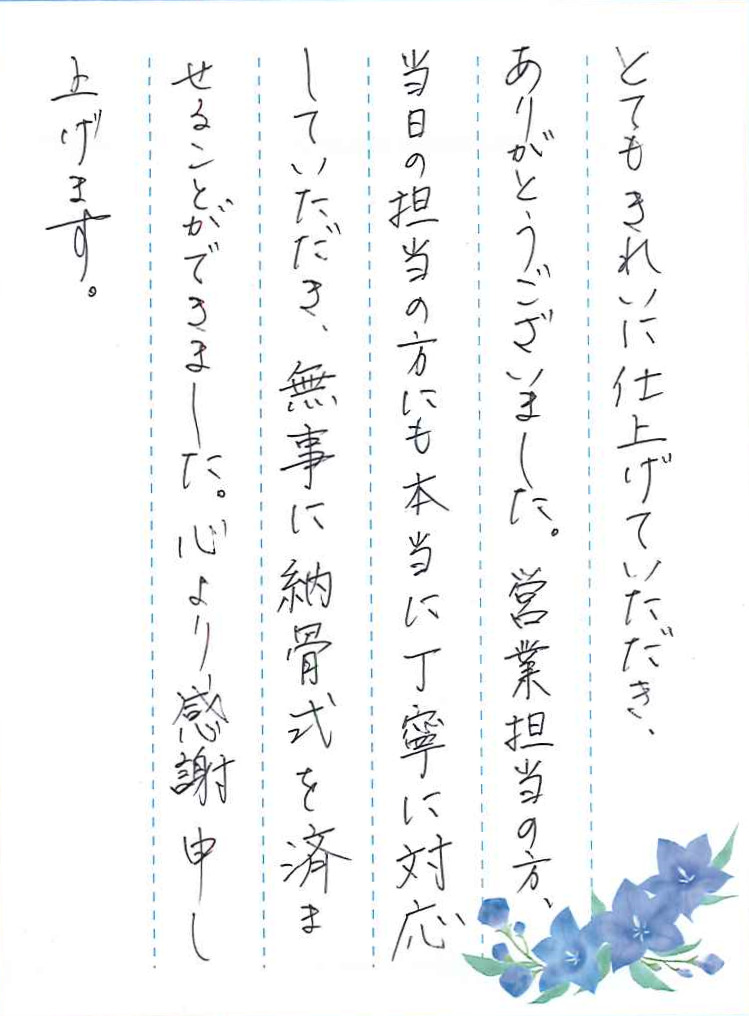 とてもきれいに仕上げていただき、
ありがとうございました。営業担当の方、
当日の担当の方にも本当に丁寧に対応
していただき、無事に納骨式を済ま
せることができました。心より感謝申し
上げます。